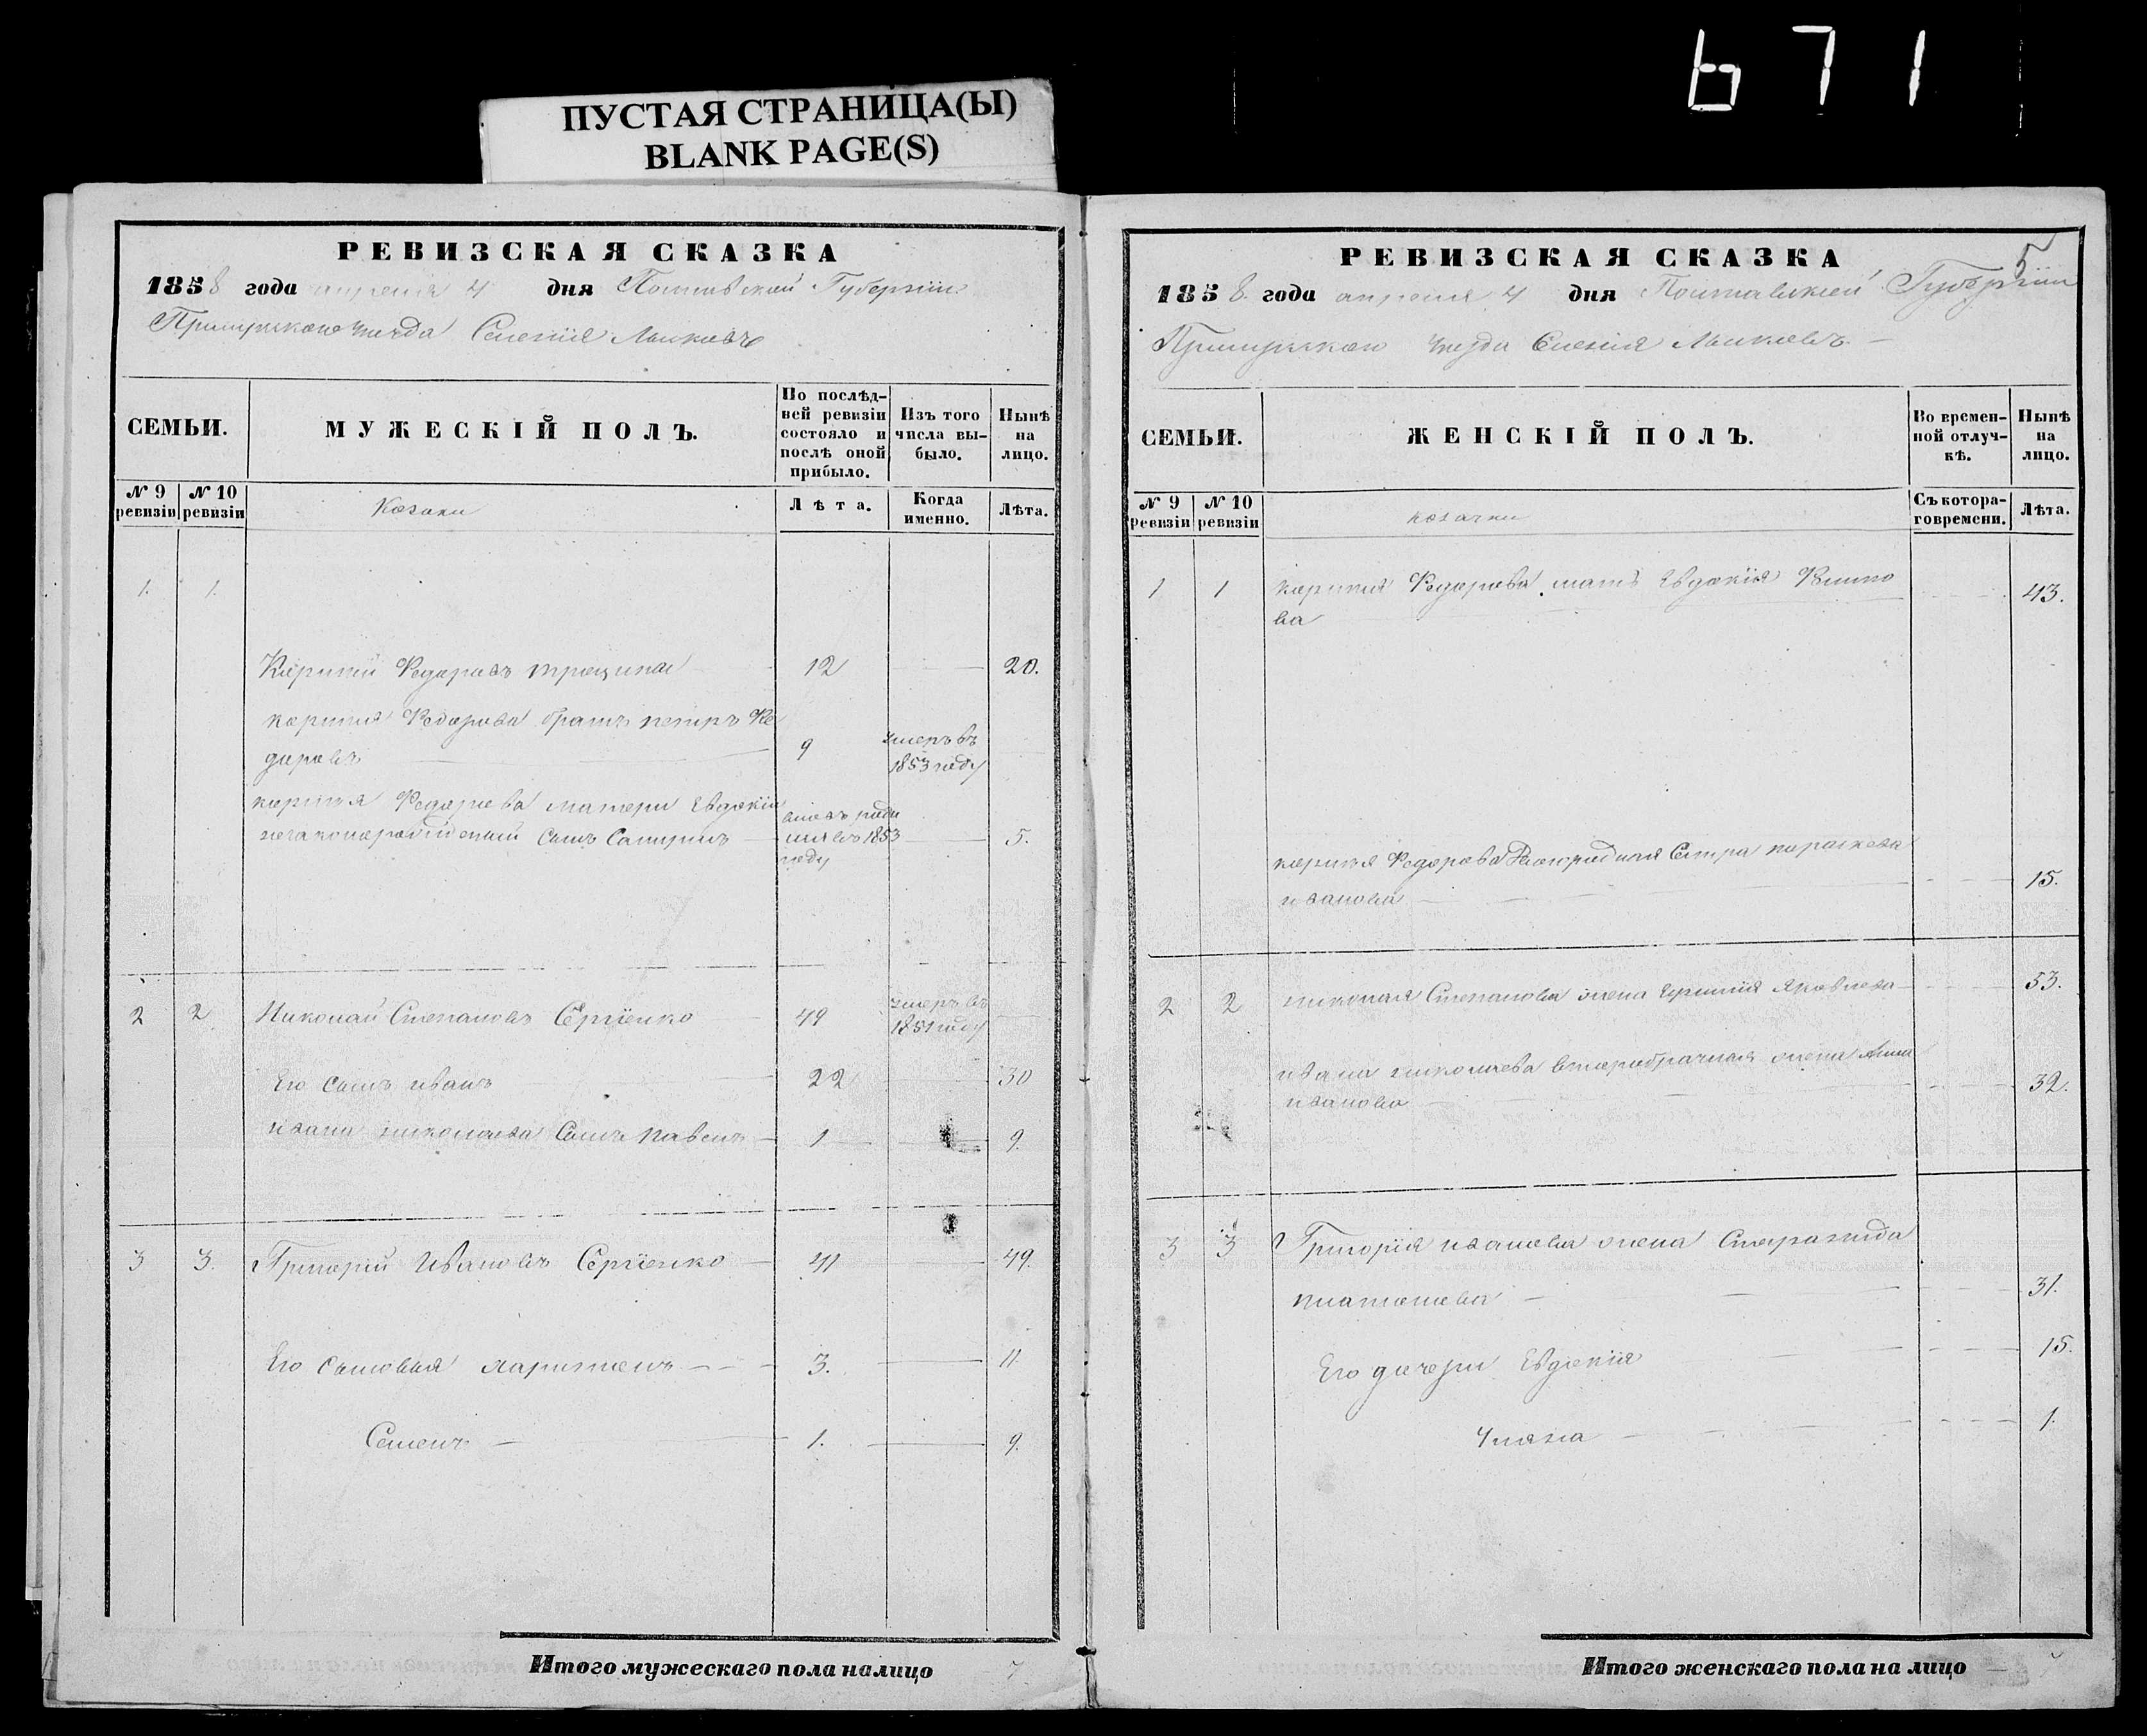 671
ПУСТАЯ СТРАНИЦА(Ы)
BLANK PAGE(S)
РЕВИЗСКАЯ СКАЗКА
1858 года апреля 4 дня Полтавской Губернiи
Прилуцкого уезда Селенiя
СЕМЬИ.
МУЖЕСКIЙ ПОЛЪ.
По послѣд-
ней ревизiи
состояло и
послѣ оной
прибыло.
Изъ того
числа вы-
было.
Нынѣ
на
лицо.
№ 9
ревизiи
№ 10
ревизiи
Козаки
Лѣта.
Когда
именно.
Лѣта.
1. 1.
Федоровъ 12 20.
Федорова братъ петръ Фе
доровъ 9 умеръ въ
1853 году
Федорова матери Евдокiи
сынъ 1853 5.
году
2 2 Николай Степановъ Сергiенко 49 умеръ въ
1851 году
Его сынъ иванъ 22 30
ивана николаева сынъ павелъ 1 9.
3 3. Григорiй Ивановъ Сергiенко 41 49.
Его сыновья харитонъ 3. 11.
Семенъ 1. 9.
Итого мужескаго пола налицо 7
РЕВИЗСКАЯ СКАЗКА
5
1858 года апреля 4 дня Полтавской Губернiи
Прилуцкого уезда Селенiя
СЕМЬИ.
ЖЕНСКIЙ ПОЛЪ.
Во времен-
ной отлуч-
кѣ.
Нынѣ
на
лицо.
№ 9
ревизiи
№ 10
ревизiи
козачки
Съ котора-
го времени.
Лѣта.
1 1 Федорова мать Евдокiя 43.
ва
Федорова сестра параскева
иванова 15.
2 2 николая Степанова жена Яковлева 53.
ивана николаева второбрачная жена Анна
иванова 32.
3 3 Григорiя иванова жена
платонова 31.
Его дочери Евдокiя 15.
1.
Итого женскаго пола на лицо